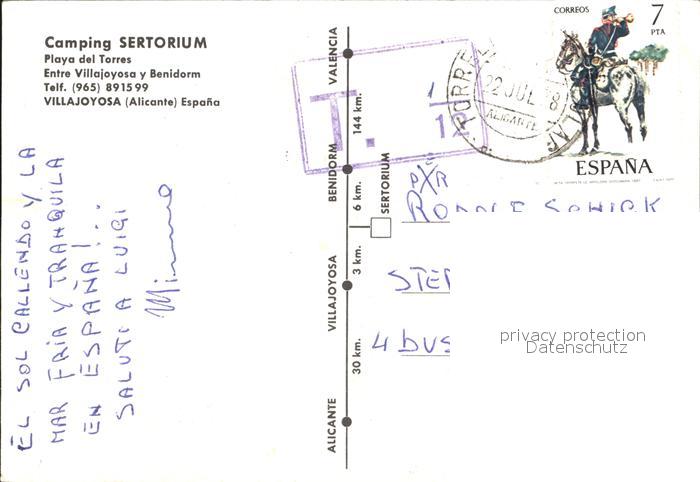 Camping SERTORIUM
Playa del Torres
Entre Villajoyosa y Benidorm
Telf. (965) 891599
VILLAJOYOSA (Alicante) España
EL SOL CALLENDO Y LA
MAR FRIA Y TRANQUILA
EN ESPAÑA!..
SALUTI A LUIGI
VALENCIA
144 km.
BENIDORM
6 km.
SERTORIUM
3 km.
VILLAJOYOSA
30 km.
ALICANTE
T.
1
12
CORREOS
7
PTA
ESPAÑA
ALICANTE
STE
4 DUS
privacy protection
Datenschutz